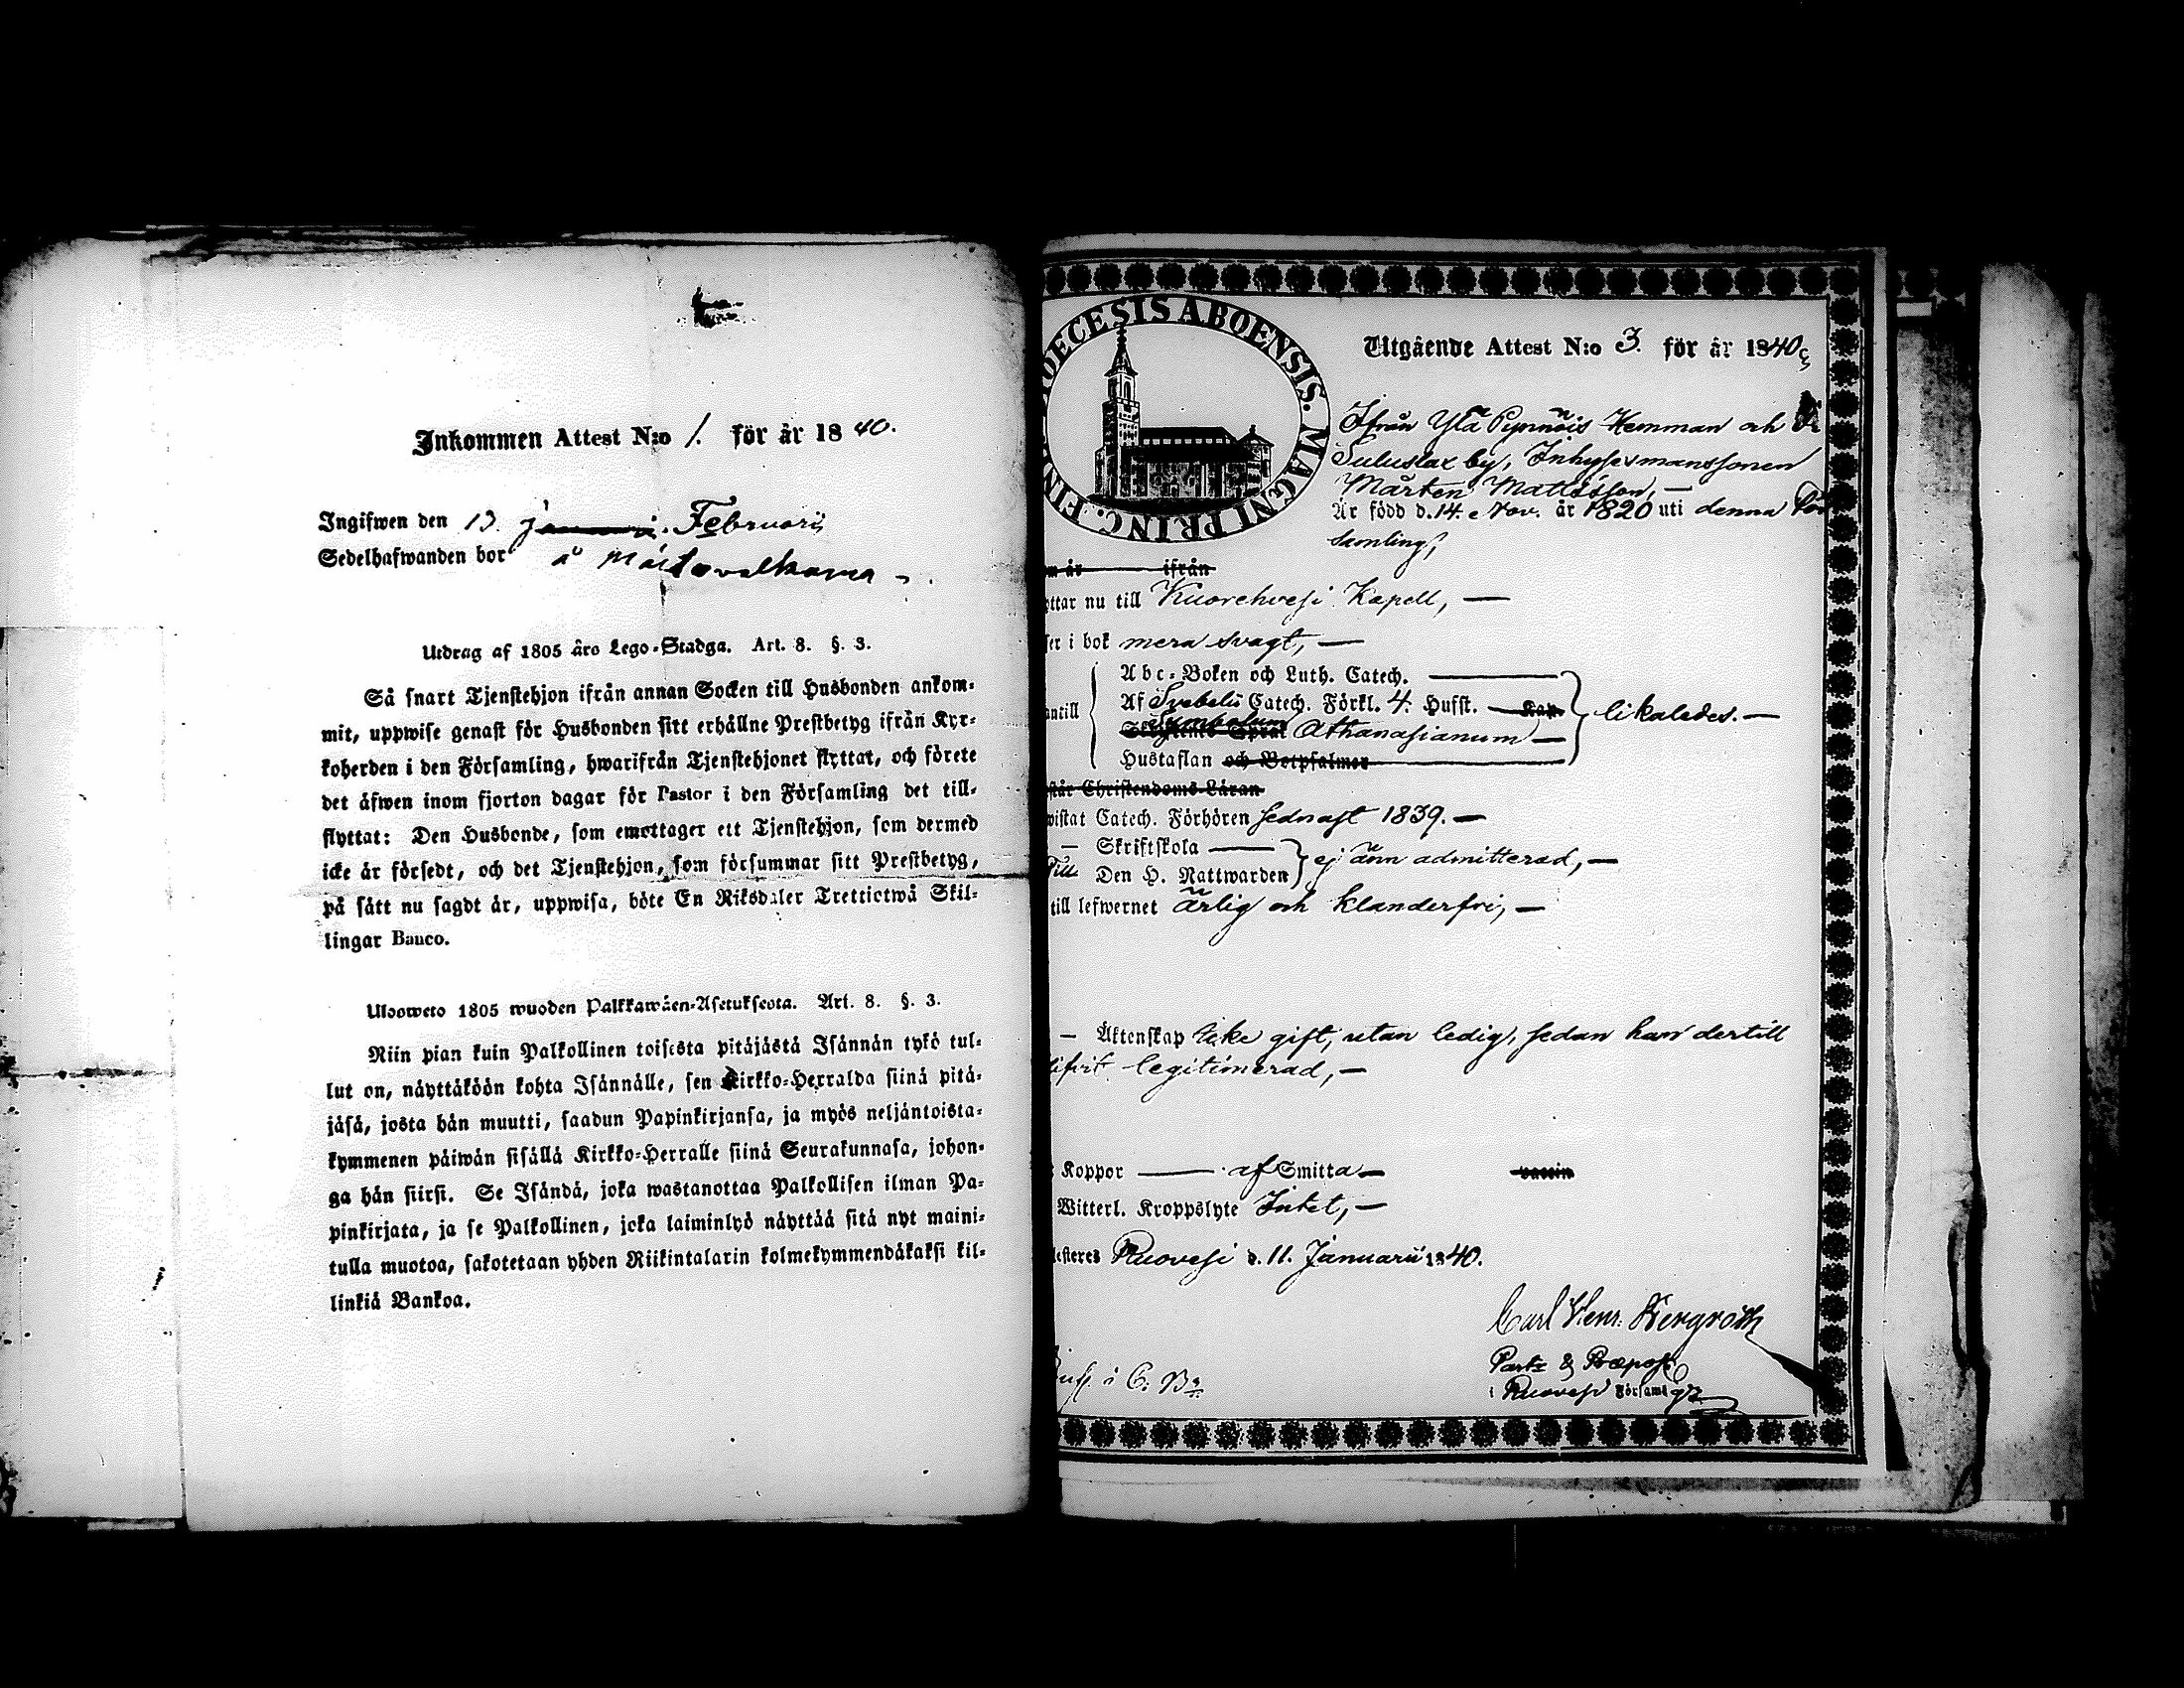 Inkommen Attest N:o 1. för år 1840.
Ingifwen den 13. Januarii. Februarii
Sedelhafwanden bor å
Utdrag af 1805 års Lego-Stadga. Art. 8. §. 3.
Så snart Tjenstehjon ifrån annan Socken till Husbonden ankom-
mit, uppwise genast för Husbonden sitt erhållne Prestbetyg ifrån Kyr-
koherden i den Församling, hwarifrån Tjenstehjonet flyttat, och förete
det äfwen inom fjorton dagar för Pastor i den Församling det till-
flyttat: Den Husbonde, som emottager ett Tjenstehjon, som dermed
icke är försedt, och det Tjenstehjon, som försummar sitt Prestbetyg,
på sätt nu sagdt är, uppwisa, böte En Riksdaler Trettiotwå Skil-
lingar Banco.
Ulosweto 1805 wuoden Palkkawäen-Asetuksesta. Art. 8. §. 3.
Niin pian kuin Palkollinen toisesta pitäjästä Isännän tykö tul-
lut on, näyttäköön kohta Isännälle, sen Kirkko-Herralda siinä pitä-
jäsä, josta hän muutti, saadun Papinkirjansa, ja myös neljäntoista-
kymmenen päiwän sisällä Kirkko-Herralle siinä Seurakunnasa, johon-
ga hän siirsi. Se Isändä, joka wastanottaa Palkollisen ilman Pa-
pinkirjata, ja se Palkollinen, joka laiminlyö näyttää sitä nyt maini-
tulla muotoa, sakotetaan yhden Riikintalarin kolmekymmendäkaksi kil-
linkiä Bankoa.
DIOECESIS ABOENSIS. MAGNI PRINC. FIN
Utgående Attest N:o 3. för år 1840
Ifrån Ylä Pynnöis Hemman och
by, Inhysesmanssonen
Mårten Mattsson, —
Är född d. 14. Nov. år 1820 uti denna För
samling,
m år ifrån
ttar nu till Kuorehvesi Kapell, —
ser i bok mera svagt, —
Abc-Boken och Luth. Catech.
antill Af Svebelii Catech. Förkl. 4. Hufst. Kap. likaledes. —
Symbolum Athanasianum —
Hustaflan och Botpsalmer
står Christendoms-Läran
wistat Catech. Förhören sednast 1839. —
— Skriftskola
Till Den H. Nattwarden ej änn admitterad, —
till lefwernet ärlig och klanderfri, —
— Äktenskap icke gift, utan ledig, sedan han dertill
legitimerad, —
Koppor — af Smitta — vaccin
Witterl. Kroppslyte Intet, —
testeres Ruovesi d. 11. Januarii 1840.
Carl Henr. Bergroth
& Præpos.
i Ruovesi Församl